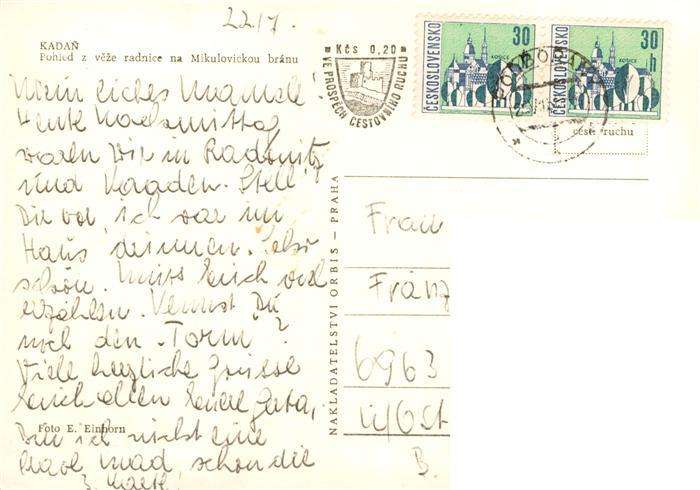 22.7.
KADAŇ
Pohled z věže radnice na Mikulovickou bránu
Kčs 0,20
VE PROSPĚCH CESTOVNÍHO RUCHU
ČESKOSLOVENSKO
30
KOŠICE
ČESKOSLOVENSKO
30 h
KOŠICE
cest. ruchu
Mein liebes Mamale!
Heute Nachmittag
waren wir in Radonitz
und Kaaden. Stell
Dir vor, ich war im
Haus drinnen. Sehr
schön. Muss Euch viel
erzählen. Kennst Du
noch den Turm?
Viele herzliche Grüsse
Euch allen Eure Gata,
Bin ich nicht eine
brave, schon die
3. Karte.
Foto E. Einhorn
NAKLADATELSTVÍ ORBIS – PRAHA
Frau
Franz
6963
B.